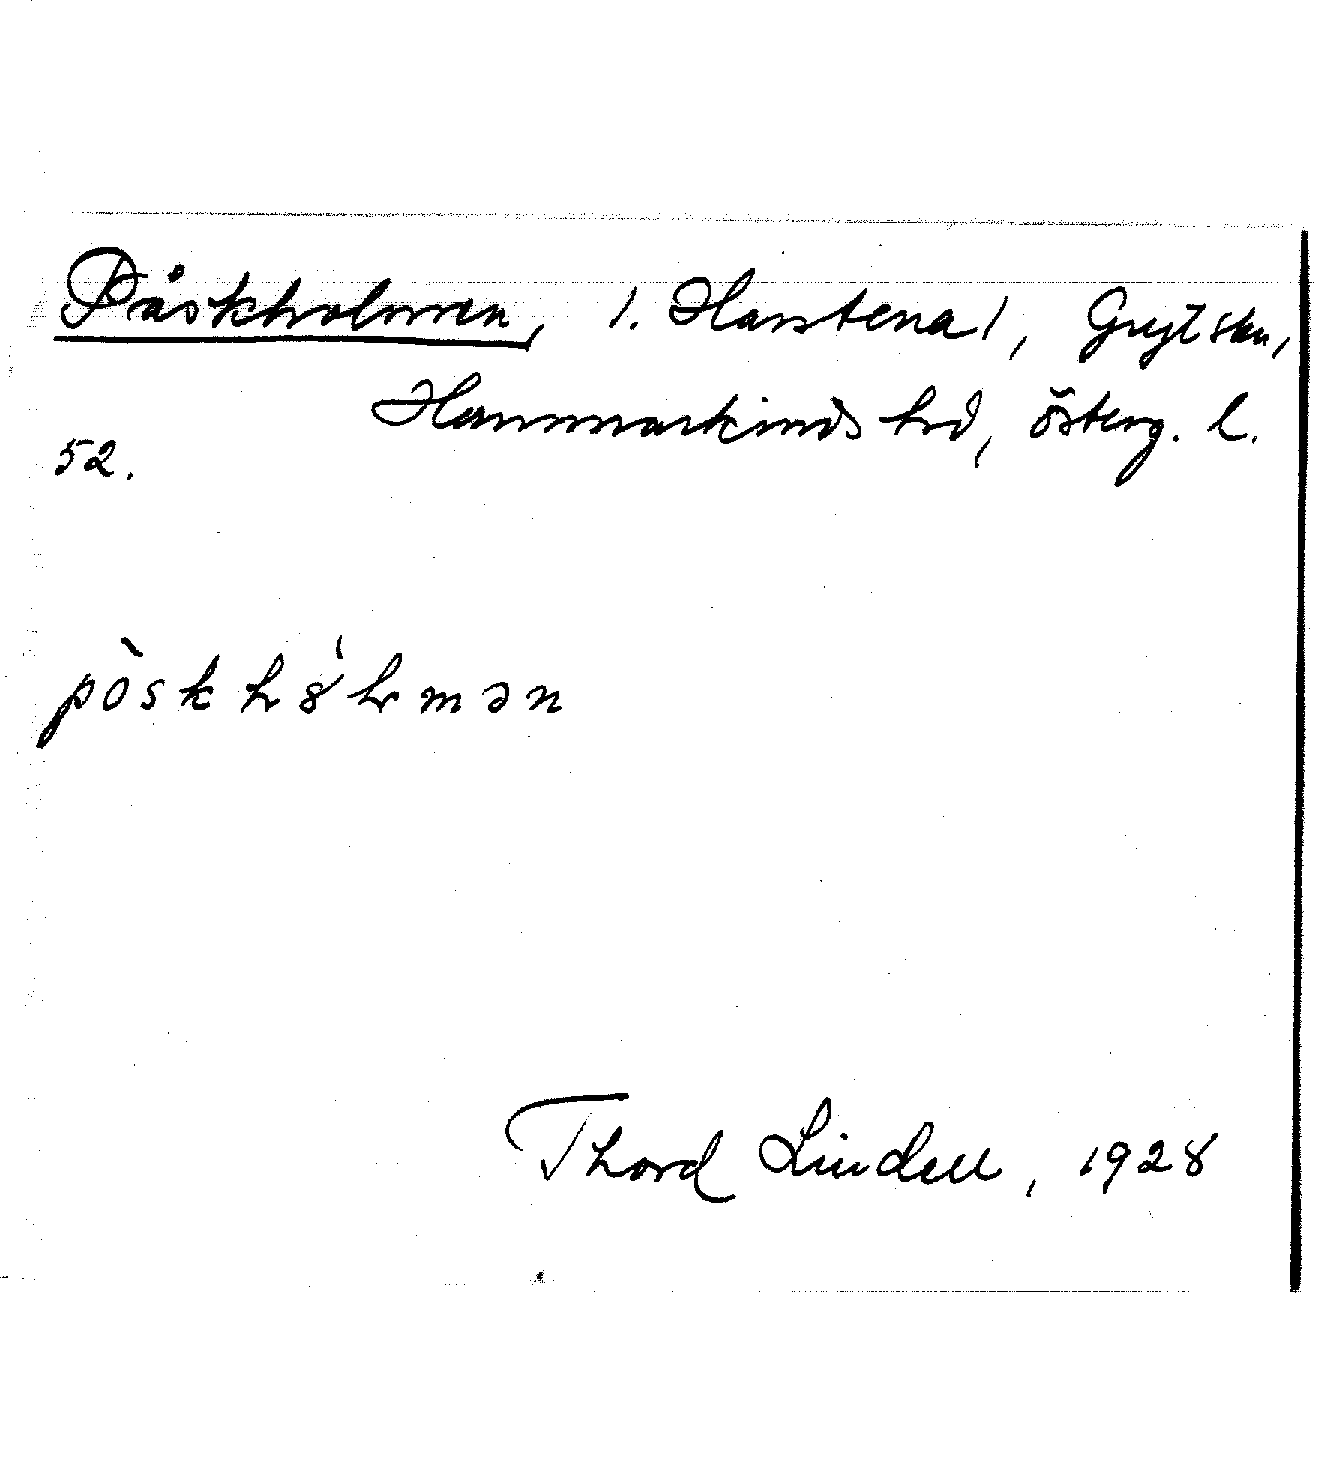 Påskholmen, /. Harstena/, Gryt skn,
Hammarkinds hrd, österg. l.
52.
Thord Lindell, 1928